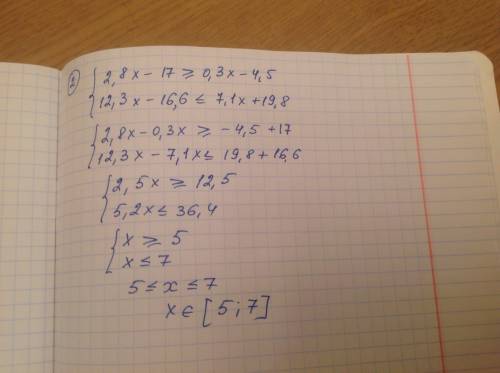 ② { 2,8x - 17 ≥ 0,3x - 4,5
12,3x - 16,6 ≤ 7,1x + 19,8
{ 2,8x - 0,3x ≥ -4,5 + 17
12,3x - 7,1x ≤ 19,8 + 16,6
{ 2,5x ≥ 12,5
5,2x ≤ 36,4
{ x ≥ 5
x ≤ 7
5 ≤ x ≤ 7
x ∈ [5; 7]